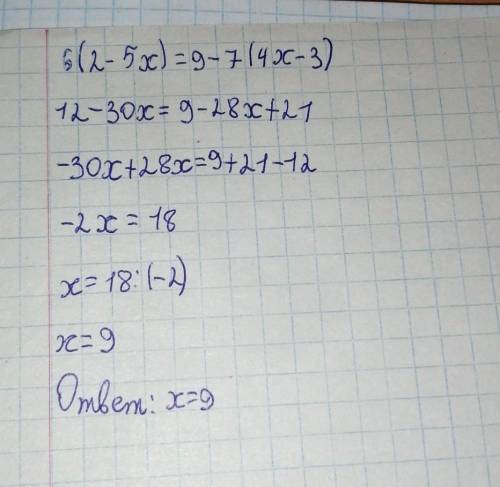 6(2-5x)=9-7(4x-3)
12-30x=9-28x+21
-30x+28x=9+21-12
-2x=18
x=18:(-2)
x=9
Ответ: x=9